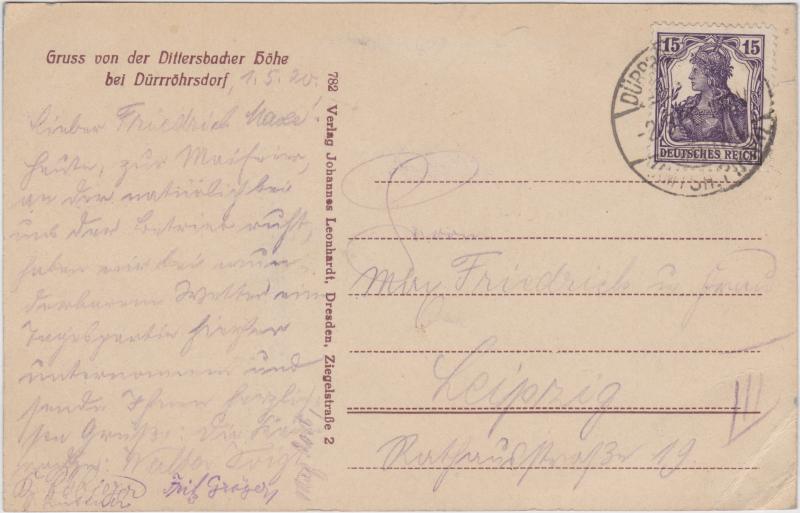 Gruss von der Dittersbacher Höhe
bei Dürrröhrsdorf, 1.5.20.
Lieber Friedrich
heute, zur Maifeier,
an der natürlich bei
uns der Betrieb ruht,
haben wir bei wun-
derbarem Wetter eine
Tagespartie hierher
unternommen und
senden Ihnen herzlich-
sten Gruss: Die
Walter
Fritz
782 Verlag Johannes Leonhardt, Dresden, Ziegelstraße 2
15 15
DEUTSCHES REICH
Herrn
Max Friedrich u. Frau
Leipzig
Rathausstraße 19.
III